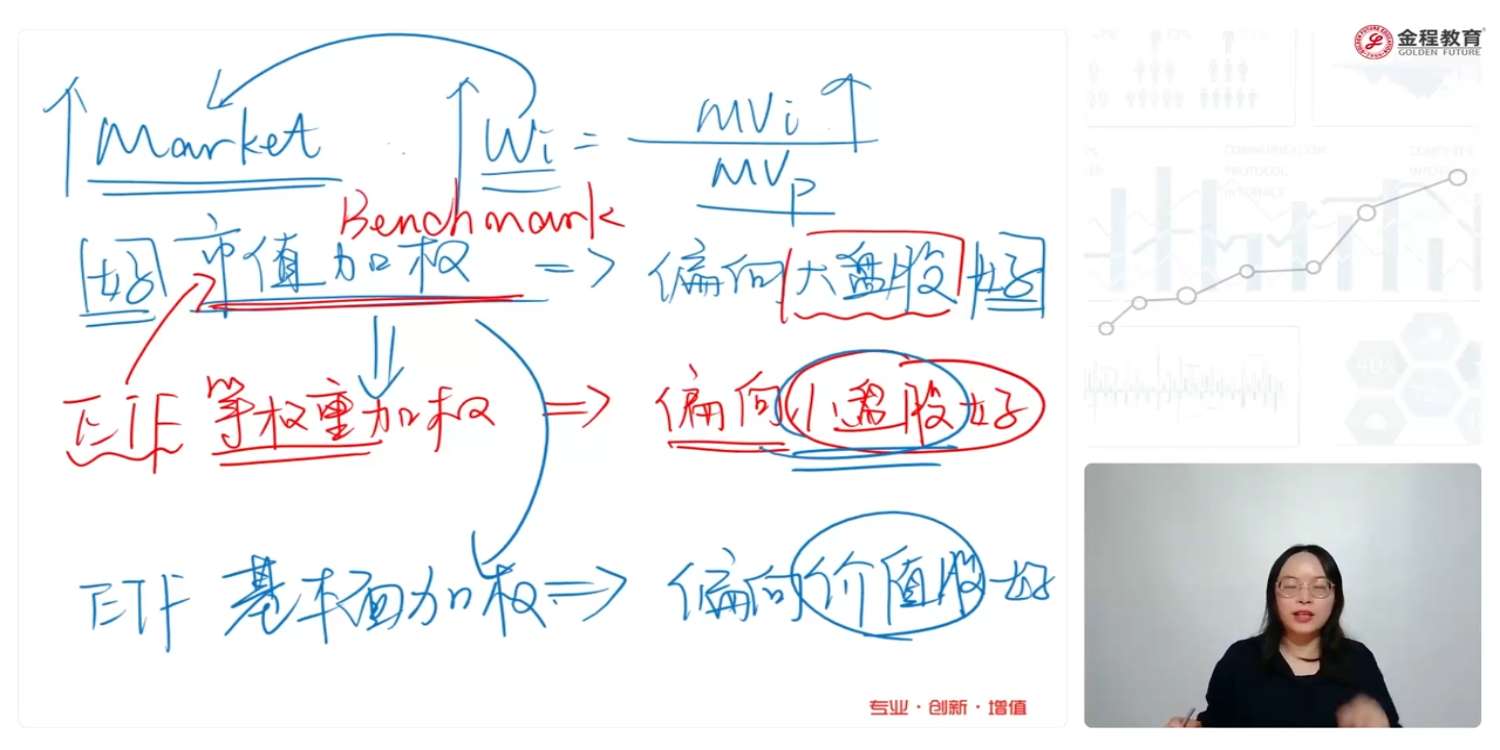 金程教育
GOLDEN FUTURE
Market Wi = MVi / MVp
Benchmark
好 市值加权 => 偏向大盘股好
ETF 等权重加权 => 偏向小盘股好
ETF 基本面加权 => 偏向价值股好
专业·创新·增值